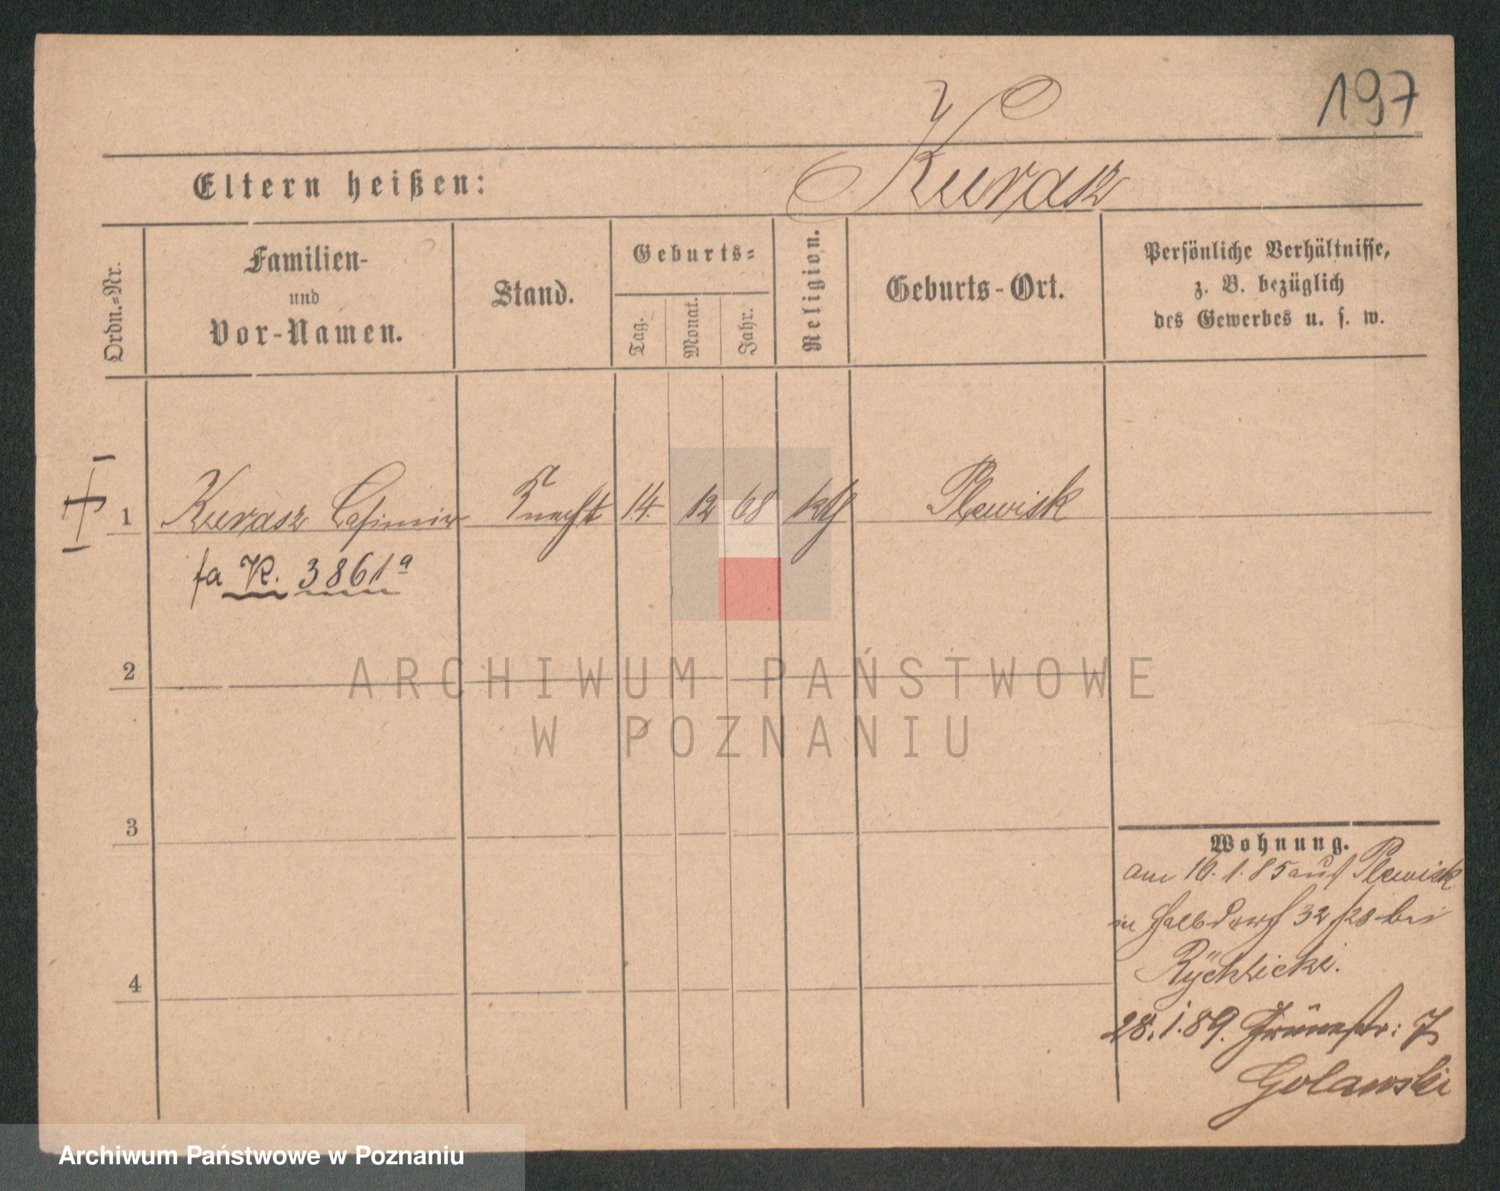 197
Eltern heißen: Kurasz
Ordn.-Nr.
Familien-
und
Vor-Namen.
Stand.
Geburts-
Tag.
Monat.
Jahr.
Religion.
Geburts-Ort.
Persönliche Verhältnisse,
z. B. bezüglich
des Gewerbes u. s. w.
1 Kurasz Casimir Knecht 14. 12 68 kth Plewisk
fa K. 3861a
2
3
4
Wohnung.
am 16.1.85 aus Plewisk
in Halbdorf 32/28 bei
Rychlicki.
28.1.89. Grünestr: 7
Golawski
ARCHIWUM PAŃSTWOWE
W POZNANIU
Archiwum Państwowe w Poznaniu